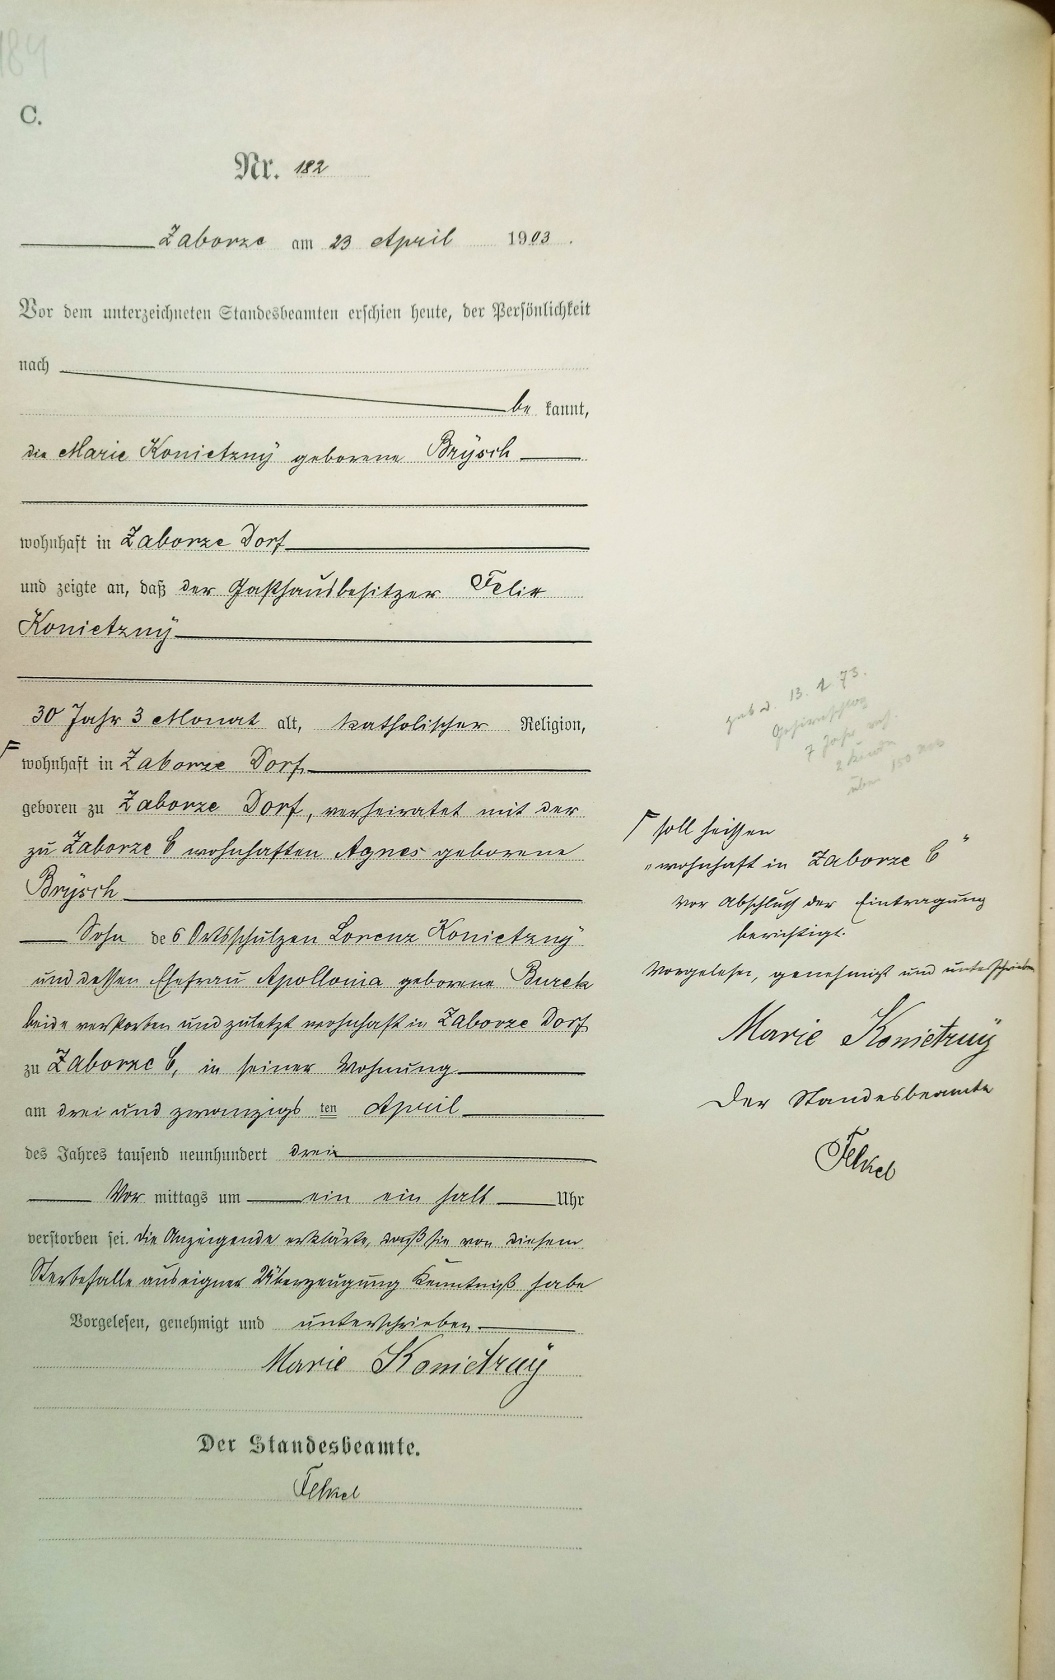 184
C.
Nr. 182
Zaborze am 23 April 1903.
Vor dem unterzeichneten Standesbeamten erschien heute, der Persönlichkeit
nach
be kannt,
die Marie Konietzny geborene Brÿsch
wohnhaft in Zaborze Dorf
und zeigte an, daß der Gasthausbesitzer Felix
Konietznÿ
30 Jahr 3 Monat alt, katholischer Religion,
wohnhaft in Zaborze Dorf
geboren zu Zaborze Dorf, verheiratet mit der
zu Zaborze C wohnhaften Agnes geborene
Brÿsch
Sohn des Ortsschulzen Lorenz Konietznÿ
und dessen Ehefrau Apollonia geborene Burek
beide verstorben und zuletzt wohnhaft in Zaborze Dorf
zu Zaborze C, in seiner Wohnung
am drei und zwanzigs ten April
des Jahres tausend neunhundert drei
Vor mittags um ein ein halb Uhr
verstorben sei. Die Anzeigende erklärte, daß sie von diesem
Sterbefalle aus eigner Überzeugung Kenntniß habe
Vorgelesen, genehmigt und unterschrieben
Marie Konietznÿ
Der Standesbeamte.
Felkel
geb. d. 13. 1. 73.
Gehirnschlag
7 Jahr verh.
2 Kinder
über 150
soll heißen
„wohnhaft in Zaborze C"
vor Abschluß der Eintragung
berichtigt.
Vorgelesen, genehmigt und unterschrieben
Marie Konietznÿ
Der Standesbeamte
Felkel